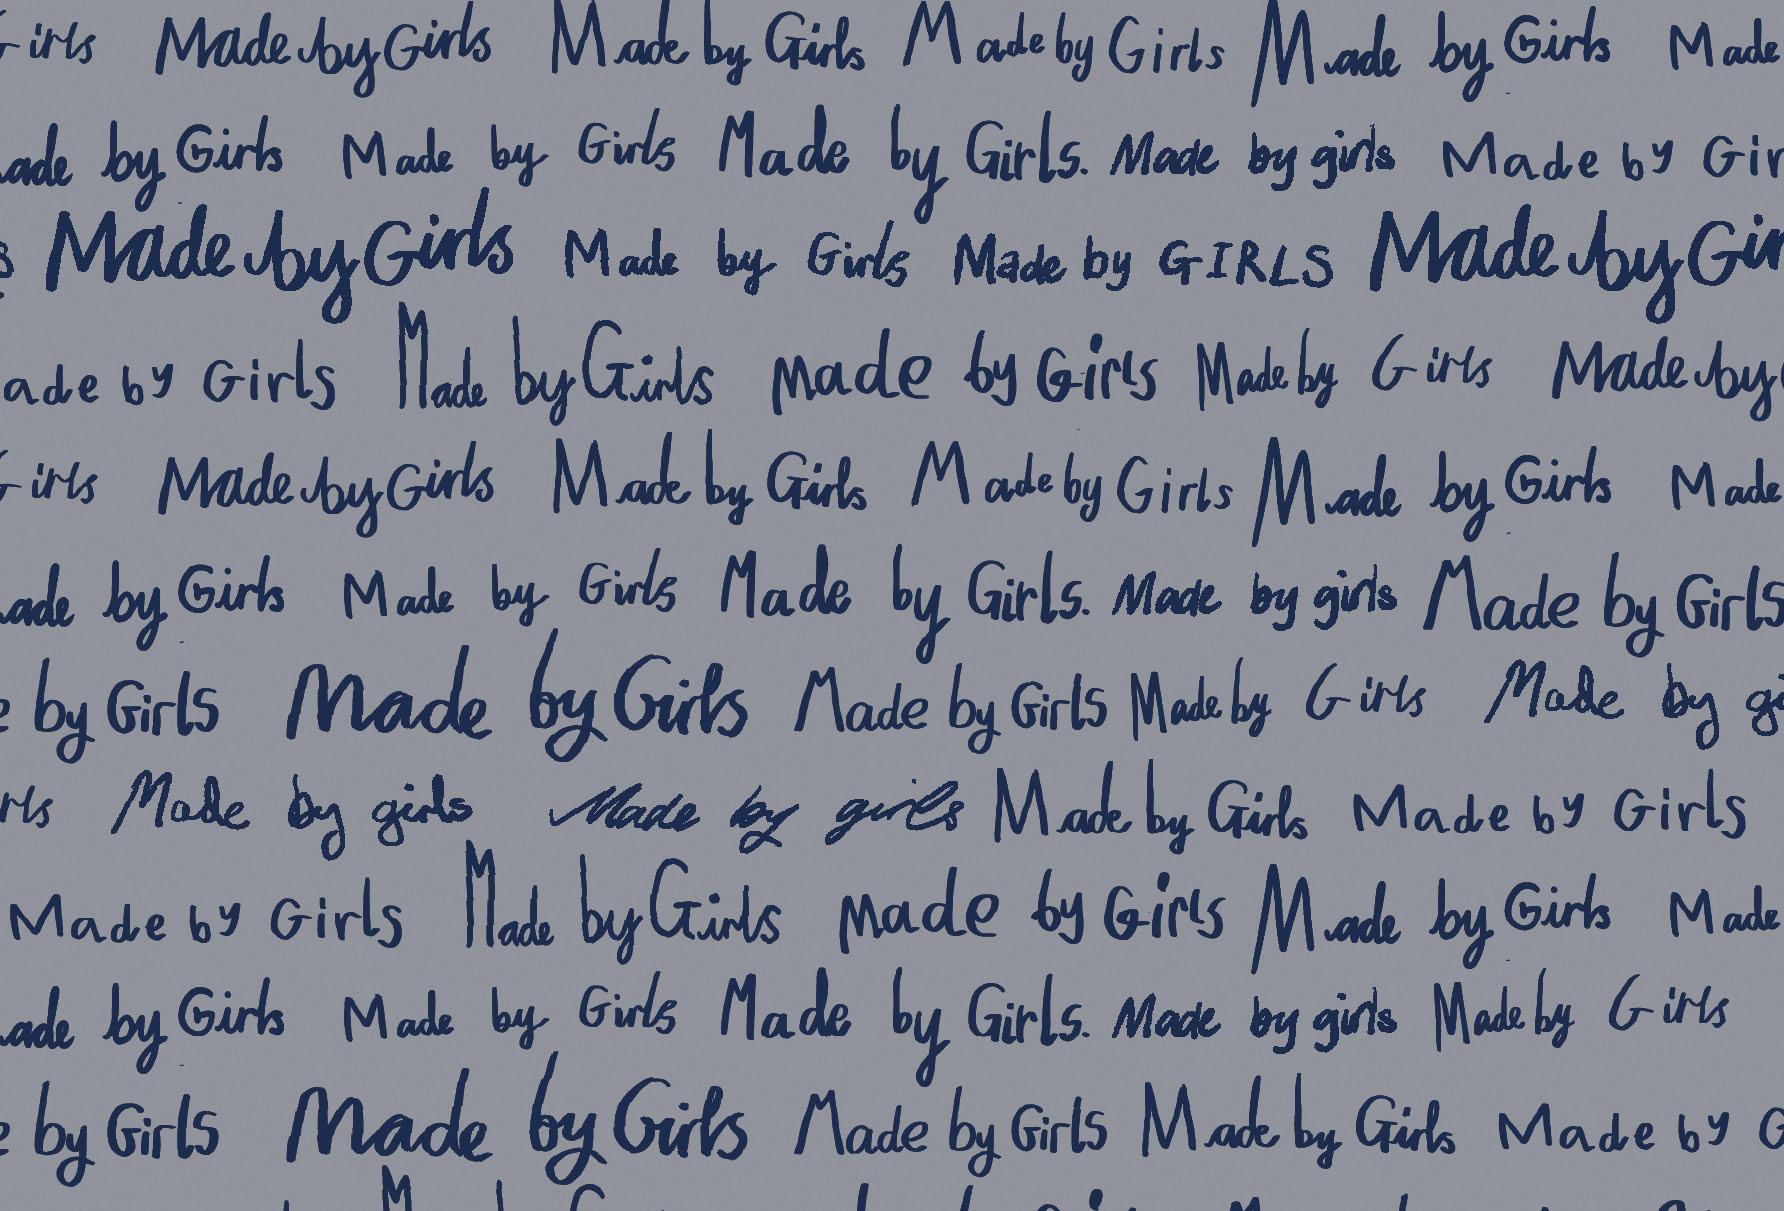 Girls Made by Girls Made by Girls Made by Girls Made by Girls Made
ade by Girls Made by Girls Made by Girls. Made by girls Made by Gir
s Made by Girls Made by Girls Made by GIRLS Made by Gir
ade by Girls Made by Girls made by Girls Made by Girls Made by
Girls Made by Girls Made by Girls Made by Girls Made by Girls Made
ade by Girls Made by Girls Made by Girls. Made by girls Made by Girls
e by Girls Made by Girls Made by Girls Made by Girls Made by gi
rls Made by girls Made by girls Made by Girls Made by Girls
Made by Girls Made by Girls made by Girls Made by Girls Made
ade by Girls Made by Girls Made by Girls. Made by girls Made by Girls
e by Girls Made by Girls Made by Girls Made by Girls Made by G